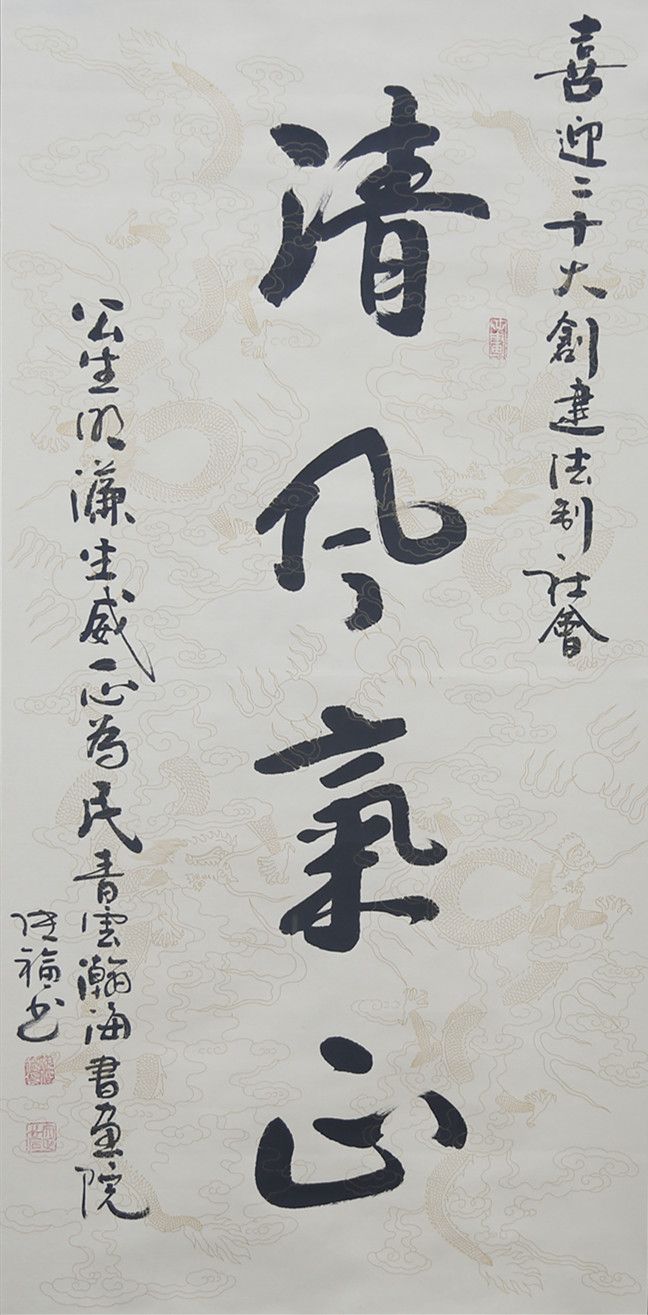 喜迎二十大創建法制社會
清风氣正
公生明濂生威一心為民青雲瀚海書画院
福书